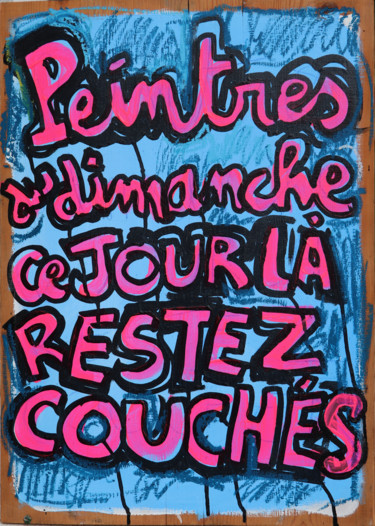 Peintres
du dimanche
ce JOUR LÀ
RESTEZ
COUCHÉS